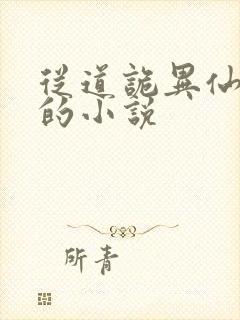 从道詭異仙
的小説
所青